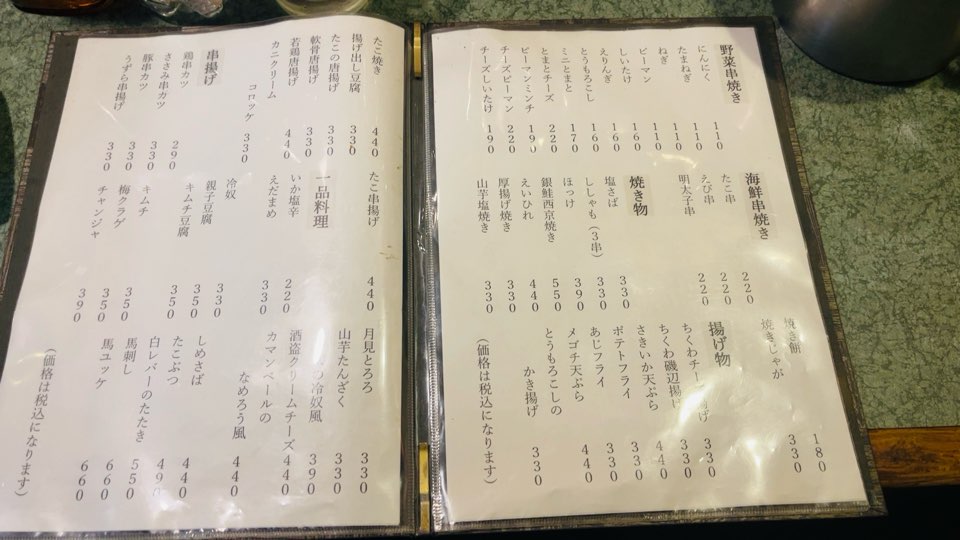 野菜串焼き
にんにく 110
たまねぎ 110
ねぎ 110
ピーマン 110
しいたけ 160
えりんぎ 160
とうもろこし 160
ミニとまと 170
とまとチーズ 220
ピーマンミンチ 190
チーズピーマン 220
チーズしいたけ 190
海鮮串焼き
たこ串 220
えび串 220
明太子串 220
焼き物
塩さば 330
ししゃも（3串） 330
ほっけ 390
銀鮭西京焼き 550
えいひれ 440
厚揚げ焼き 330
山芋塩焼き 330
焼き餅 180
焼きじゃが 330
揚げ物
ちくわチー 揚げ 330
ちくわ磯辺揚げ 330
さきいか天ぷら 440
ポテトフライ 330
あじフライ 330
メゴチ天ぷら 440
とうもろこしの
かき揚げ 330
（価格は税込になります）
たこ焼き 440
揚げ出し豆腐 330
たこの唐揚げ 330
軟骨唐揚げ 330
若鶏唐揚げ 440
カニクリーム
コロッケ 330
串揚げ
鶏串カツ 290
ささみ串カツ 330
豚串カツ 330
うずら串揚げ 330
たこ串揚げ 440
一品料理
いか塩辛 220
えだまめ 330
冷奴 330
親子豆腐 350
キムチ豆腐 350
キムチ 350
梅クラゲ 350
チャンジャ 390
月見とろろ 330
山芋たんざく 330
の冷奴風 390
酒盗クリームチーズ 440
カマンベールの
なめろう風 440
しめさば 440
たこぶつ 490
白レバーのたたき 550
馬刺し 660
馬ユッケ 660
（価格は税込になります）